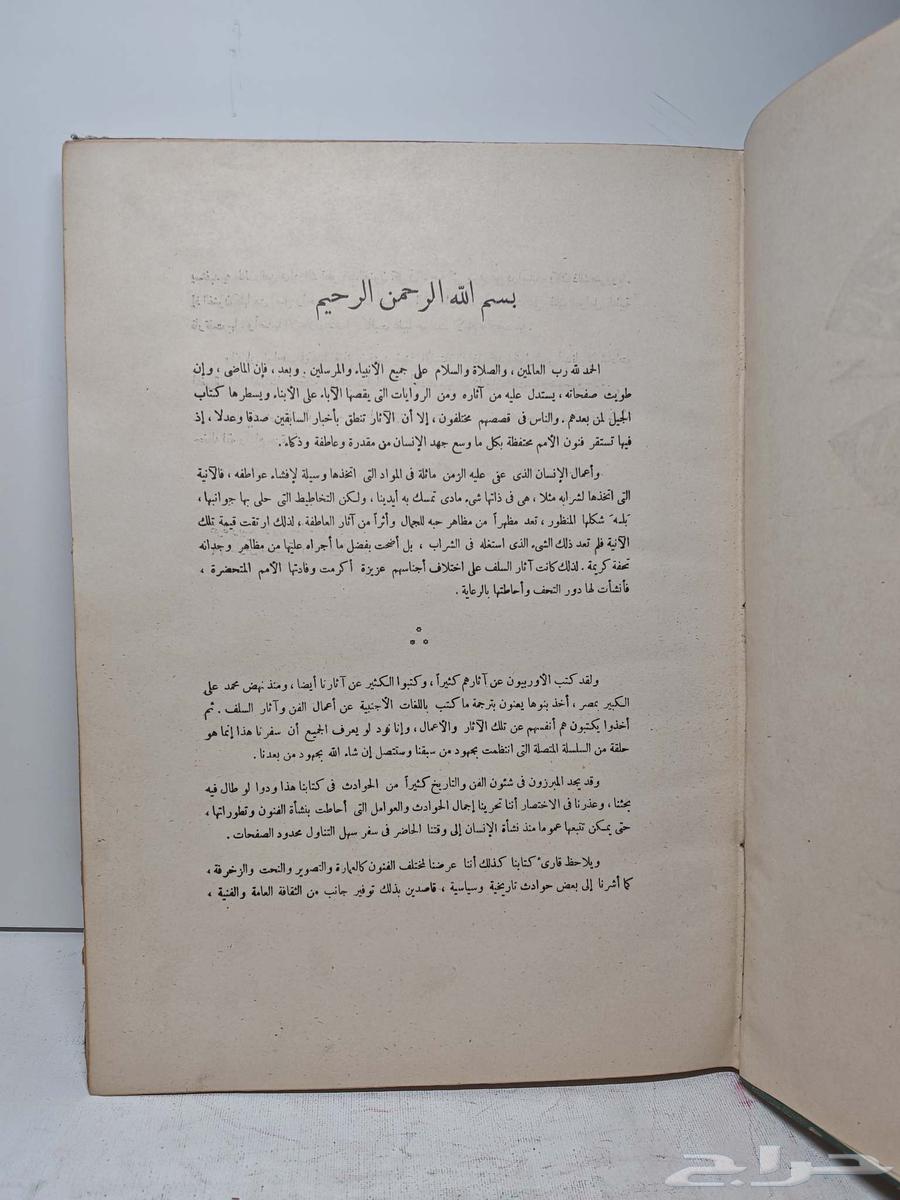 بسم الله الرحمن الرحيم
الحمد لله رب العالمين ، والصلاة والسلام على جميع الأنبياء والمرسلين . وبعد ، فإن الماضى ، وإن
طويت صفحاته ، يستدل عليه من آثاره ومن الروايات التى يقصها الآباء على الأبناء ويسطرها كتاب
الجيل لمن بعدهم . والناس فى قصصهم مختلفون ، إلا أن الآثار تنطق بأخبار السابقين صدقا وعدلا ، إذ
فيها تستقر فنون الأمم محتفظة بكل ما وسع جهد الإنسان من مقدرة وعاطفة وذكاء .
وأعمال الإنسان الذى عفى عليه الزمن ماثلة فى المواد التى اتخذها وسيلة لإفشاء عواطفه ، فالآنية
التى اتخذها لشرابه مثلا ، هى فى ذاتها شىء مادى تمسك به أيدينا ، ولكن التخاطيط التى حلى بها جوانبها ،
شكلها المنظور ، تعد مظهراً من مظاهر حبه للجمال وأثراً من آثار العاطفة ، لذلك ارتقت قيمة تلك
الآنية فلم تعد ذلك الشىء الذى استغله فى الشراب ، بل أضحت بفضل ما أجراه عليها من مظاهر وجدانه
تحفة كريمة . لذلك كانت آثار السلف على اختلاف أجناسهم عزيزة أكرمت وفادتها الأمم المتحضرة ،
فأنشأت لها دور التحف وأحاطتها بالرعاية .
ولقد كتب الأوربيون عن آثارهم كثيراً ، وكتبوا الكثير عن آثارنا أيضا ، ومنذ نهض محمد على
الكبير بمصر ، أخذ بنوها يعنون بترجمة ما كتب باللغات الأجنبية عن أعمال الفن وآثار السلف . ثم
أخذوا يكتبون هم أنفسهم عن تلك الآثار والأعمال ، وإنا نود لو يعرف الجميع أن سفرنا هذا إنما هو
حلقة من السلسلة المتصلة التى انتظمت بجهود من سبقنا وستتصل إن شاء الله بجهود من بعدنا .
وقد يجد المبرزون فى شئون الفن والتاريخ كثيراً من الحوادث فى كتابنا هذا ودوا لو طال فيه
بحثنا ، وعذرنا فى الاختصار أننا تحرينا إجمال الحوادث والعوامل التى أحاطت بنشأة الفنون وتطوراتها ،
حتى يمكن تتبعها عموما منذ نشأة الإنسان إلى وقتنا الحاضر فى سفر سهل التناول محدود الصفحات .
ويلاحظ قارئ كتابنا كذلك أننا عرضنا لمختلف الفنون كالعمارة والتصوير والنحت والزخرفة ،
كما أشرنا إلى بعض حوادث تاريخية وسياسية ، قاصدين بذلك توفير جانب من الثقافة العامة والفنية ،
حراج